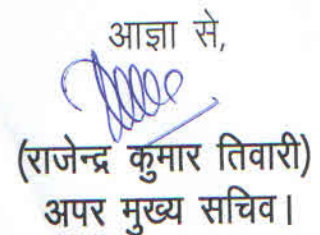 आज्ञा से,
(राजेन्द्र कुमार तिवारी)
अपर मुख्य सचिव।